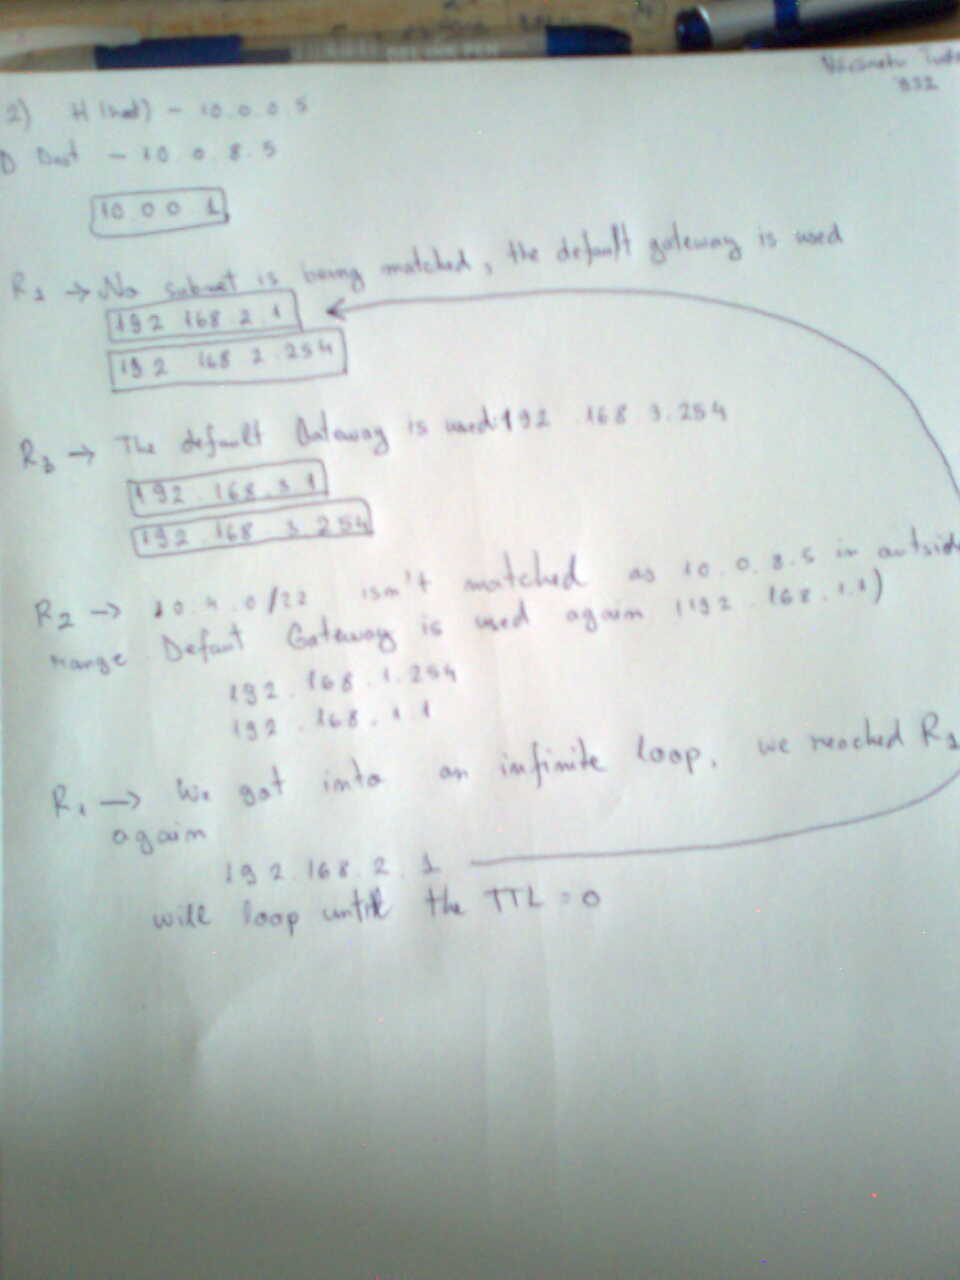 932
2) H (host) - 10.0.0.5
D Dest - 10.0.8.5
10 0 0 1
R1 → No subnet is being matched, the default gateway is used
192 168 2 1
192 168 2 254
R3 → The default Gateway is used:192.168.3.254
192.168.3.1
192.168 3.254
R2 → 10.4.0/22 isn't matched as 10.0.8.5 is outside
range Defaut Gateway is used again (192.168.1.1)
192.168.1.254
192.168.1.1
R1 → We got into an infinite loop, we reached R1
again
192.168.2.1
will loop until the TTL = 0